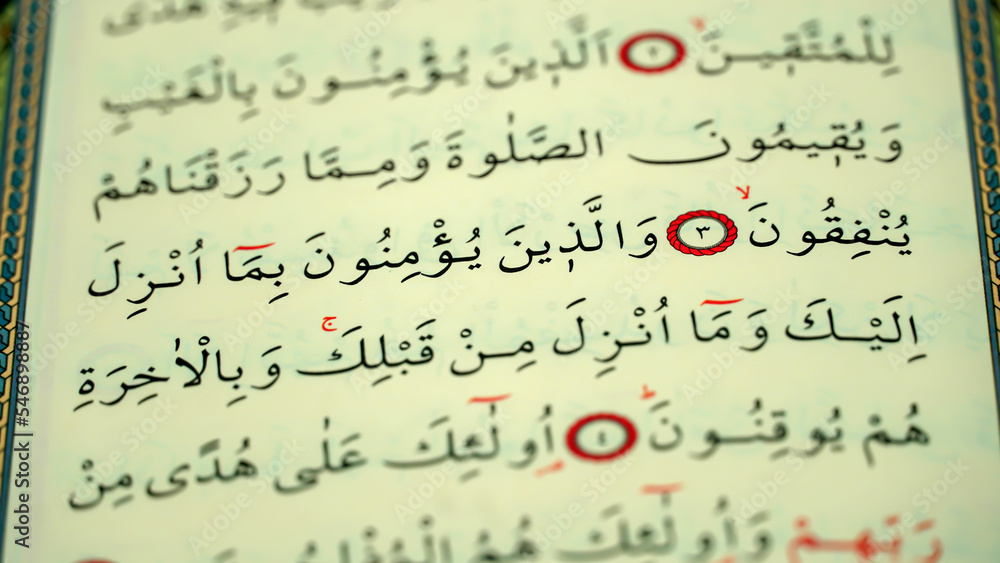 هُدًى
لِلْمُتَّقٖينَۙ ﴿٢﴾ اَلَّذٖينَ يُؤْمِنُونَ بِالْغَيْبِ
وَيُقٖيمُونَ الصَّلٰوةَ وَمِمَّا رَزَقْنَاهُمْ
يُنْفِقُونَۙ ﴿٣﴾ وَالَّذٖينَ يُؤْمِنُونَ بِمَٓا اُنْزِلَ
اِلَيْكَ وَمَٓا اُنْزِلَ مِنْ قَبْلِكَۚ وَبِالْاٰخِرَةِ
هُمْ يُوقِنُونَؕ ﴿٤﴾ اُو۬لٰٓئِكَ عَلٰى هُدًى مِنْ
رَبِّهِمْ وَاُو۬لٰٓئِكَ هُمُ الْمُفْلِحُونَ
Adobe Stock | 546898887